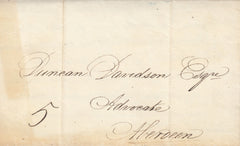 Duncan Davidson Esqre
Advocate
Aberdeen
5